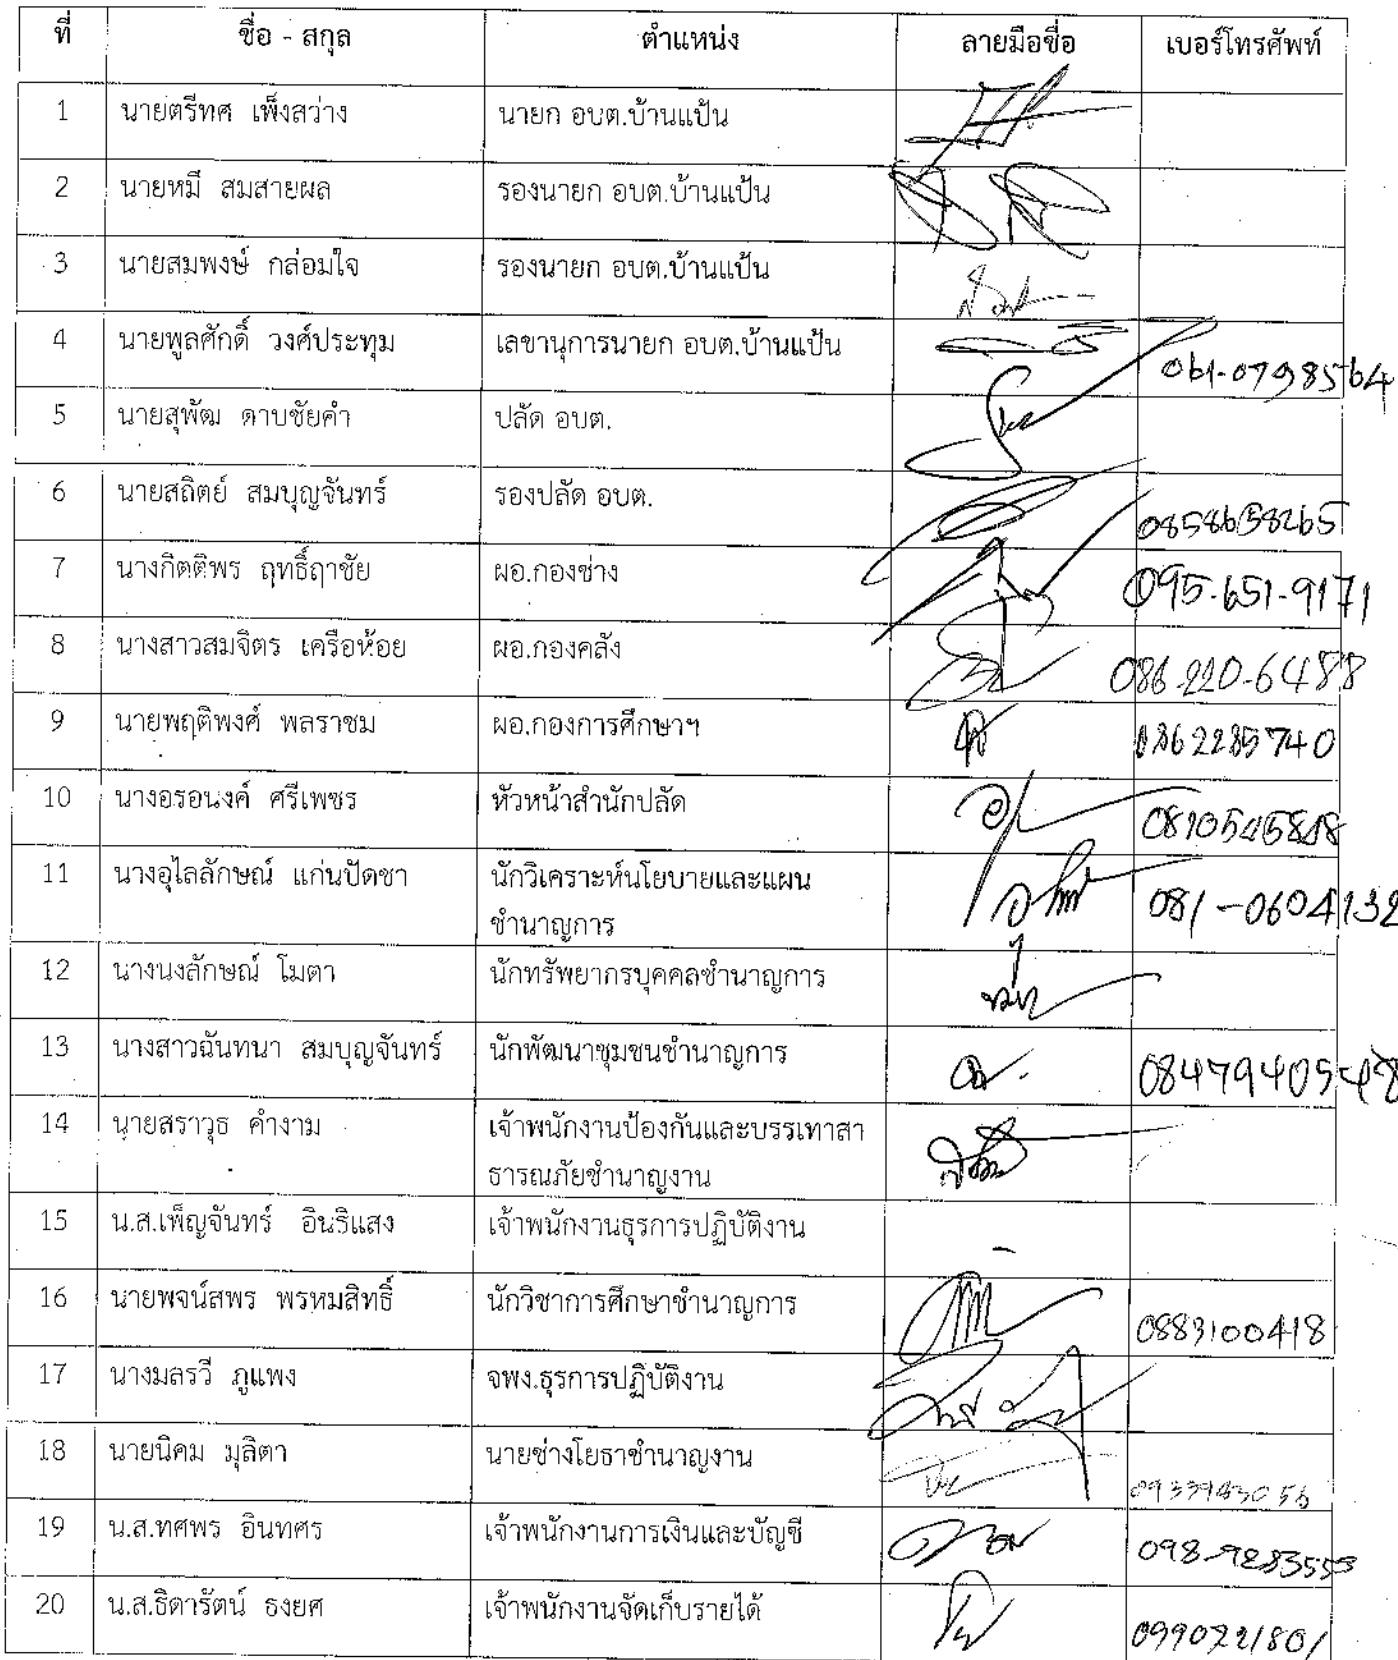 ที่ ชื่อ - สกุล ตำแหน่ง ลายมือชื่อ เบอร์โทรศัพท์
1 นายตรีทศ เพ็งสว่าง นายก อบต.บ้านแป้น
2 นายหมี สมสายผล รองนายก อบต.บ้านแป้น
3 นายสมพงษ์ กล่อมใจ รองนายก อบต.บ้านแป้น
4 นายพูลศักดิ์ วงศ์ประทุม เลขานุการนายก อบต.บ้านแป้น 061-0798564
5 นายสุพัฒ ดาบชัยคำ ปลัด อบต.
6 นายสถิตย์ สมบุญจันทร์ รองปลัด อบต. 0858658265
7 นางกิตติพร ฤทธิ์ฤาชัย ผอ.กองช่าง 095-651-9171
8 นางสาวสมจิตร เครือห้อย ผอ.กองคลัง 086-220-6488
9 นายพฤติพงศ์ พลราชม ผอ.กองการศึกษาฯ 0862285740
10 นางอรอนงค์ ศรีเพชร หัวหน้าสำนักปลัด
11 นางอุไลลักษณ์ แก่นปัดชา นักวิเคราะห์นโยบายและแผน 081-0604132
ชำนาญการ
12 นางนงลักษณ์ โมตา นักทรัพยากรบุคคลชำนาญการ
13 นางสาวฉันทนา สมบุญจันทร์ นักพัฒนาชุมชนชำนาญการ 0847940548
14 นายสราวุธ คำงาม เจ้าพนักงานป้องกันและบรรเทาสา
ธารณภัยชำนาญงาน
15 น.ส.เพ็ญจันทร์ อินริแสง เจ้าพนักงานธุรการปฏิบัติงาน -
16 นายพจน์สพร พรหมสิทธิ์ นักวิชาการศึกษาชำนาญการ 0883100418
17 นางมลรวี ภูแพง จพง.ธุรการปฏิบัติงาน
18 นายนิคม มุลิตา นายช่างโยธาชำนาญงาน
19 น.ส.ทศพร อินทศร เจ้าพนักงานการเงินและบัญชี
20 น.ส.ธิดารัตน์ ธงยศ เจ้าพนักงานจัดเก็บรายได้ 0990721801